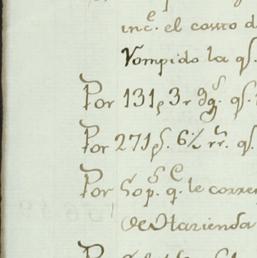 inc.e el costo d
Rompido la qſ.
Por 131p 3r dgs. qſ.
Por 271pſ. 6½ rrs. qſ.
Por 50ps. q.e le corre
de Hazienda